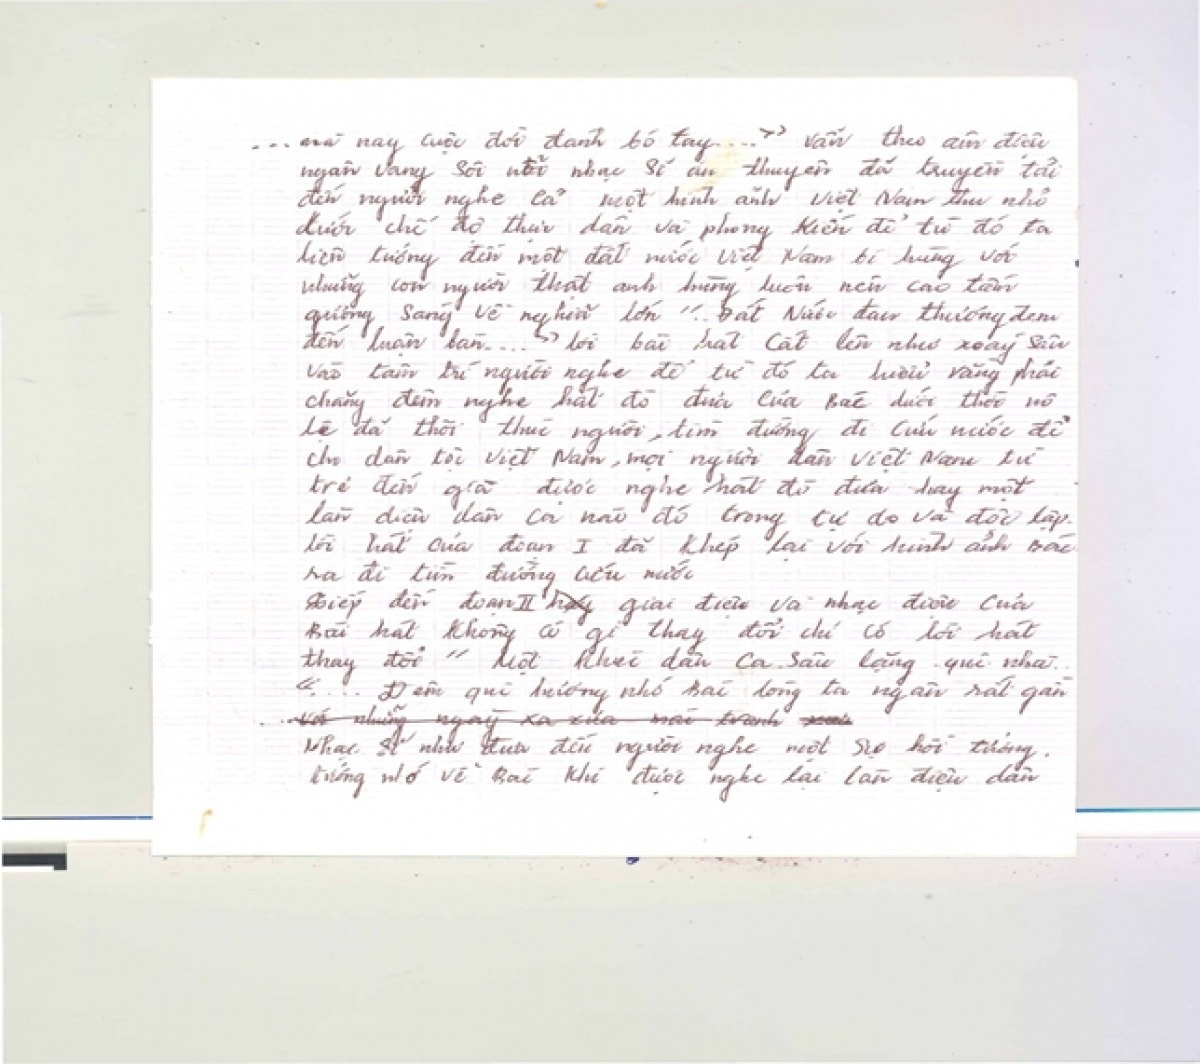 ...mà nay cuộc đời đành bó tay....” vẫn theo âm điệu
ngân vang sôi nổi nhạc sĩ An Thuyên đã truyền tải
đến người nghe cả một hình ảnh Việt Nam thu nhỏ
dưới chế độ thực dân và phong kiến để từ đó ta
liên tưởng đến một đất nước Việt Nam bi hùng với
những con người thật anh hùng luôn nên cao tấm
gương sáng về nghĩa lớn “.. Đất Nước đau thương đem
đến luận bàn....” lời bài hát cất lên như xoáy sâu
vào tâm trí người nghe để từ đó ta hiểu rằng phải
chăng đêm nghe hát đò đưa của Bác dưới thời nô
lệ đã thôi thúc người, tìm đường đi cứu nước để
cho dân tộc Việt Nam, mọi người dân Việt Nam từ
trẻ đến già được nghe hát đò đưa hay một
làn điệu dân ca nào đó trong tự do và độc lập.
lời hát của đoạn I đã khép lại với hình ảnh Bác
ra đi tìm đường cứu nước
Tiếp đến đoạn II giai điệu và nhạc điệu của
Bài hát không có gì thay đổi chỉ có lời hát
thay đổi “ Một khúc dân ca sâu lặng quê nhà..
“.... Đêm quê hương nhớ Bác lòng ta ngân rất gần
...với những ngày xa xưa mái tranh
Nhạc sĩ như đưa đến người nghe một sự hồi tưởng.
tưởng nhớ về Bác khi được nghe lại làn điệu dân